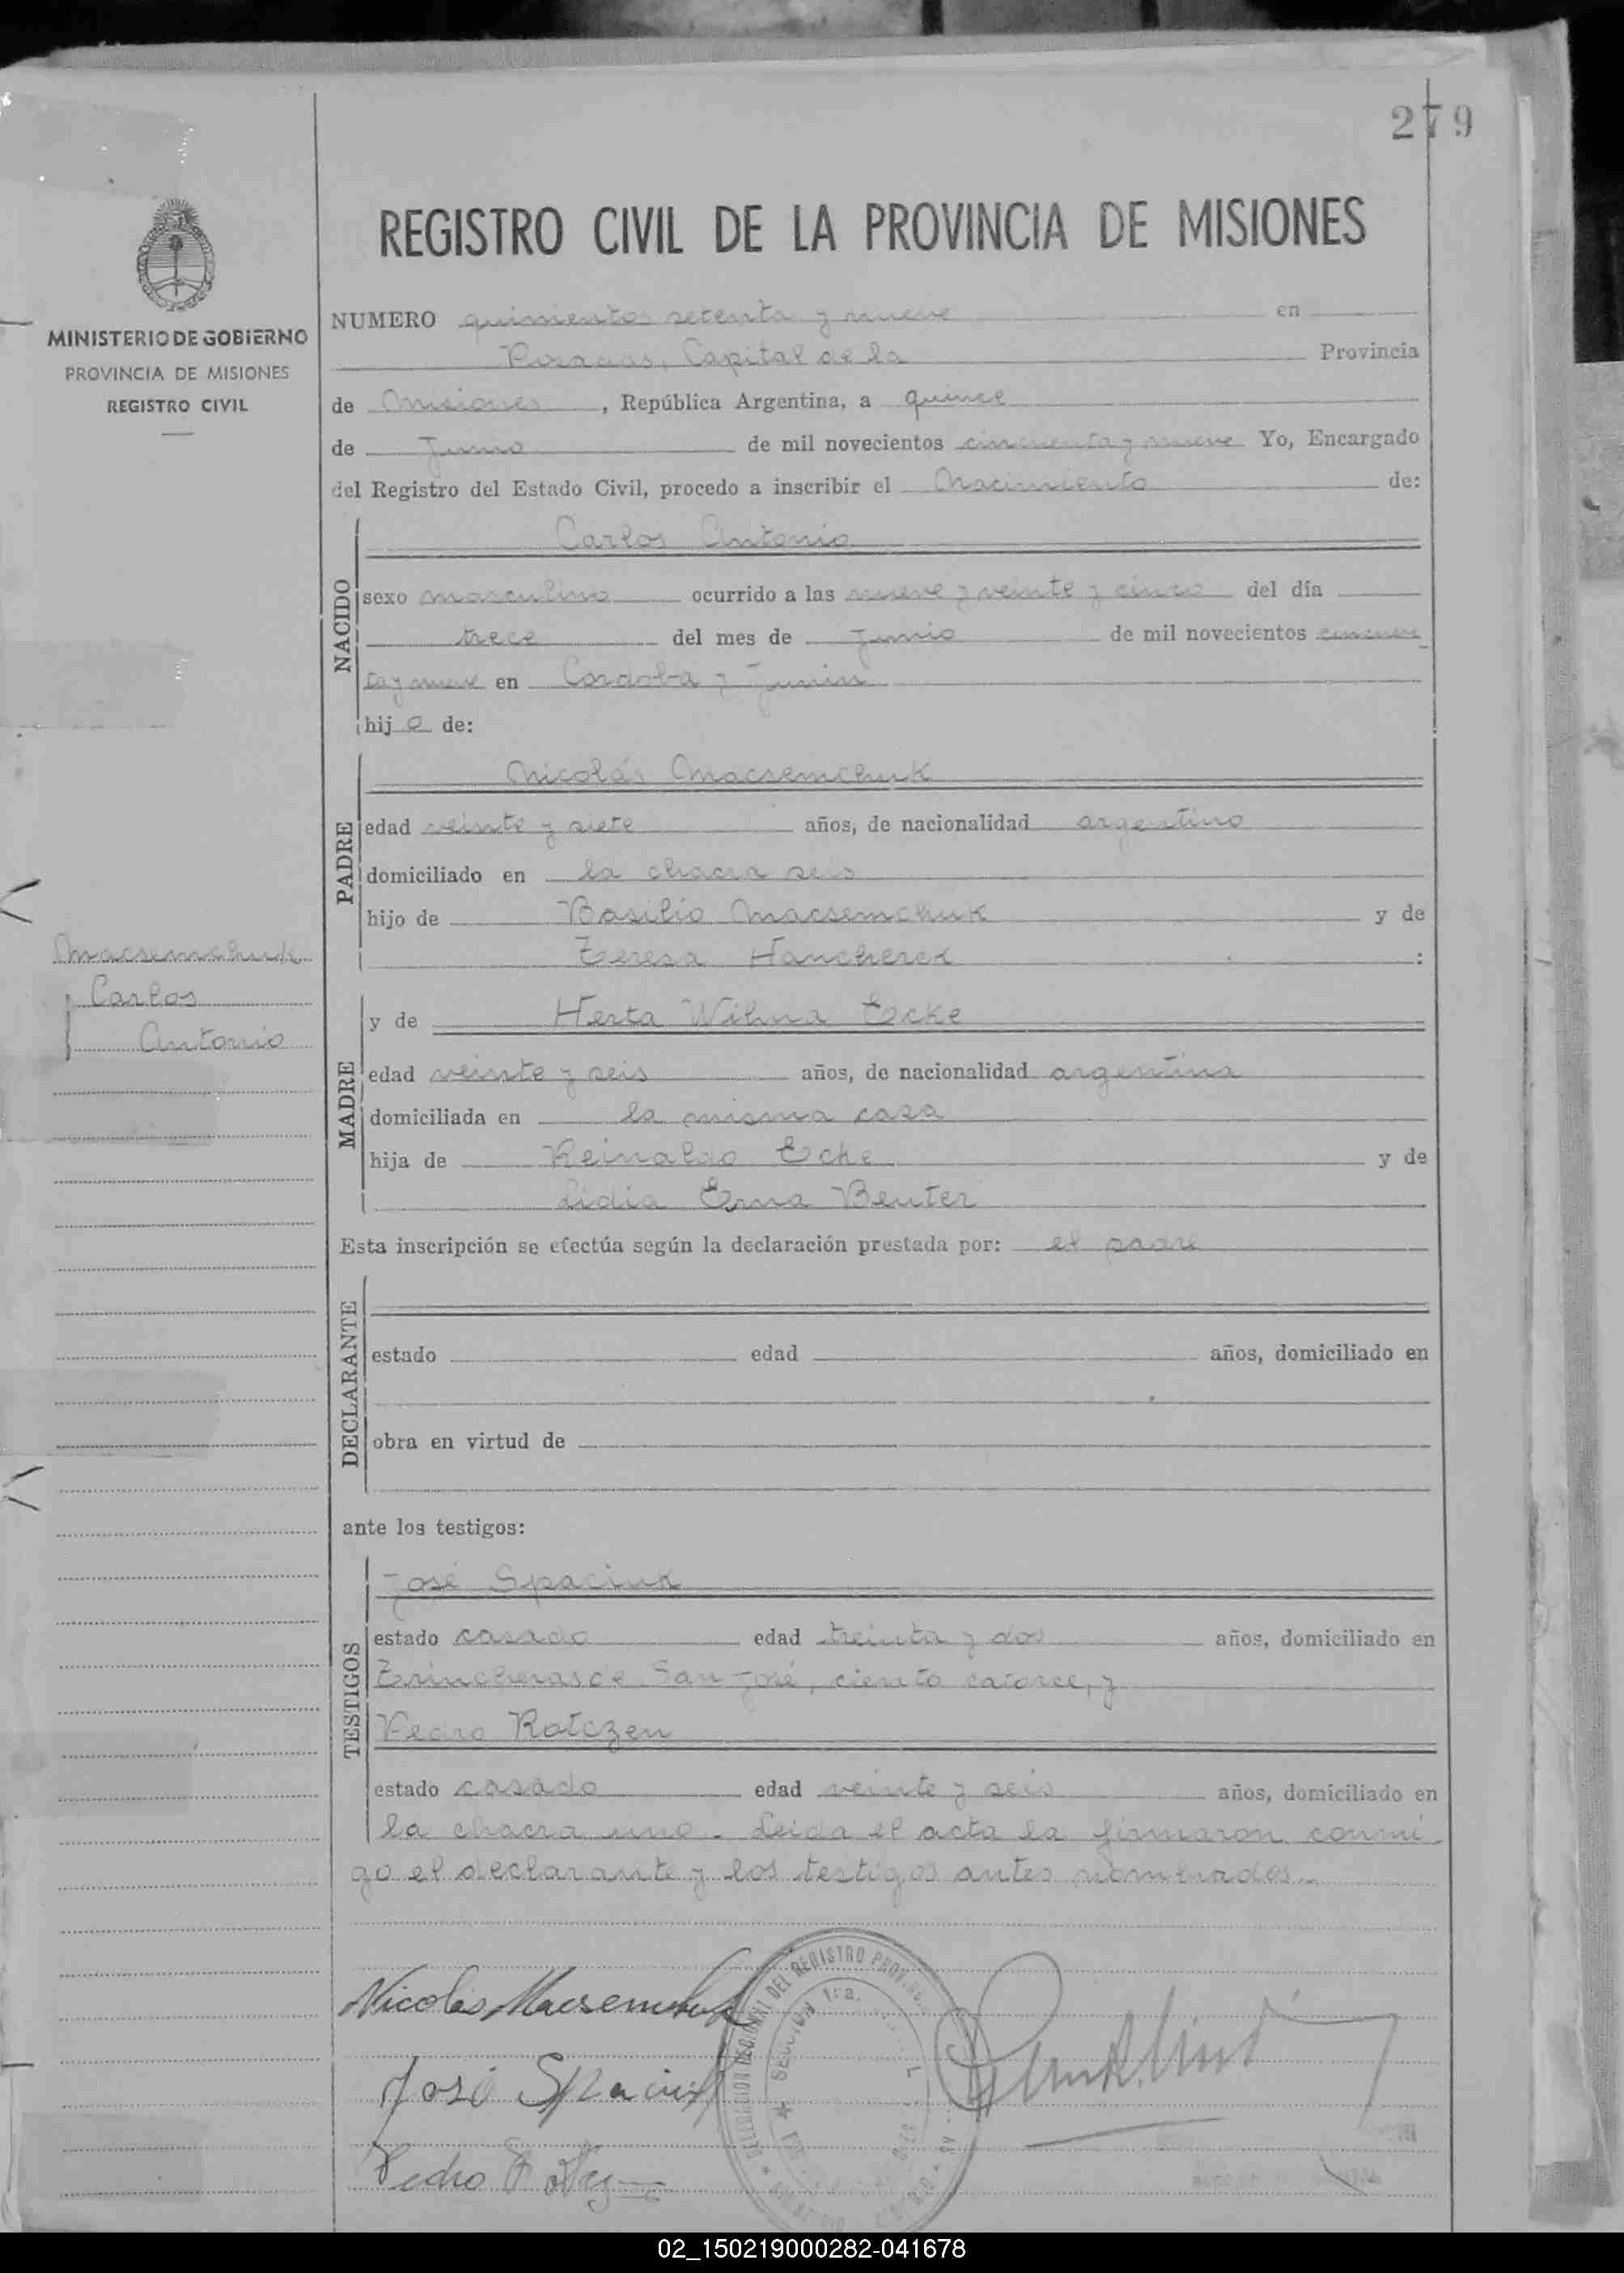 279
REGISTRO CIVIL DE LA PROVINCIA DE MISIONES
MINISTERIO DE GOBIERNO
PROVINCIA DE MISIONES
REGISTRO CIVIL
NUMERO quinientos setenta y nueve en
Posadas, Capital de la Provincia
de Misiones, República Argentina, a quince
de Junio de mil novecientos cincuenta y nueve Yo, Encargado
del Registro del Estado Civil, procedo a inscribir el Nacimiento de:
NACIDO
Carlos Antonio
sexo masculino ocurrido a las nueve y veinte y cinco del día
trece del mes de Junio de mil novecientos cincuen
ta y nueve en Cordoba y Junin
hijo de:
PADRE
Nicolás Macsemchuk
edad veinte y siete años, de nacionalidad argentino
domiciliado en la chacra seis
hijo de Basilio Macsemchuk y de
Teresa Hancherek :
Macsemchuk
Carlos
Antonio
MADRE
y de Herta Wilma Ecke
edad veinte y seis años, de nacionalidad argentina
domiciliada en la misma casa
hija de Reinaldo Ecke y de
Lidia Erna Beuter
Esta inscripción se efectúa según la declaración prestada por: el padre
DECLARANTE
estado edad años, domiciliado en
obra en virtud de
ante los testigos:
TESTIGOS
José Spaciuk
estado casado edad treinta y dos años, domiciliado en
Trincheras de San José, ciento catorce, y
Pedro Rotczen
estado casado edad veinte y seis años, domiciliado en
la chacra uno. Leida el acta la firmaron conmi
go el declarante y los testigos antes nombrados.
Nicolás Macsemchuk
José Spaciuk
Pedro
DELEGACION REGIONAL DEL REGISTRO PROV.
SECCION 1ra.
02_150219000282-041678